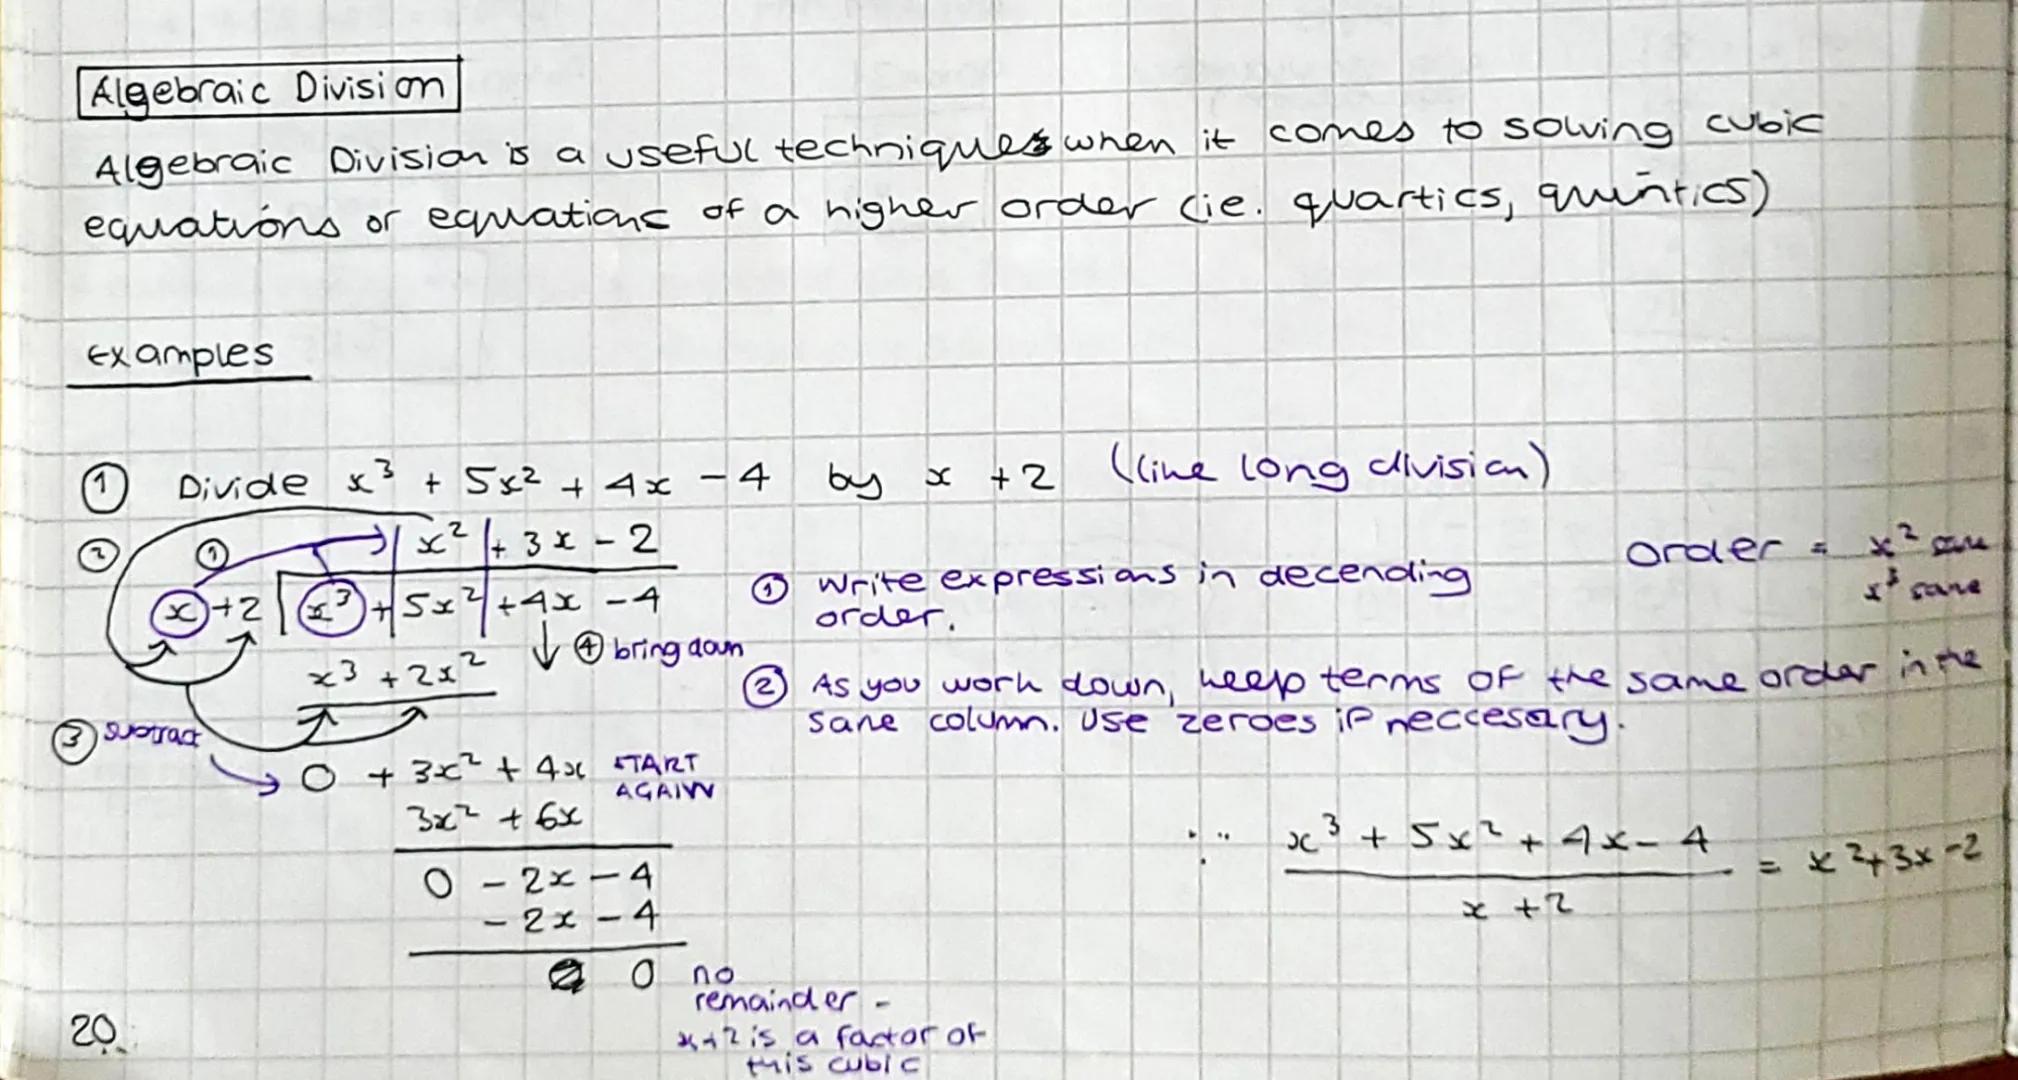 Algebraic Division
Algebraic Division is a useful technique when it comes to solving cubic
equations or equations of a higher order (ie. quartics, quintics)
Examples
① Divide x³ + 5x² + 4x - 4 by x + 2 (like long division)
② ① x² + 3x - 2
x + 2 x³ + 5x² + 4x - 4
④ bring down
x³ + 2x²
③ subtract
0 + 3x² + 4x START
AGAIN
3x² + 6x
0 - 2x - 4
- 2x - 4
0 no
remainder -
x+2 is a factor of
this cubic
① Write expressions in decending
order.
order = x² same
x³ same
② As you work down, keep terms of the same order in the
same column. Use zeroes if neccesary.
∴ x³ + 5x² + 4x - 4 = x²+3x-2
x + 2
20.